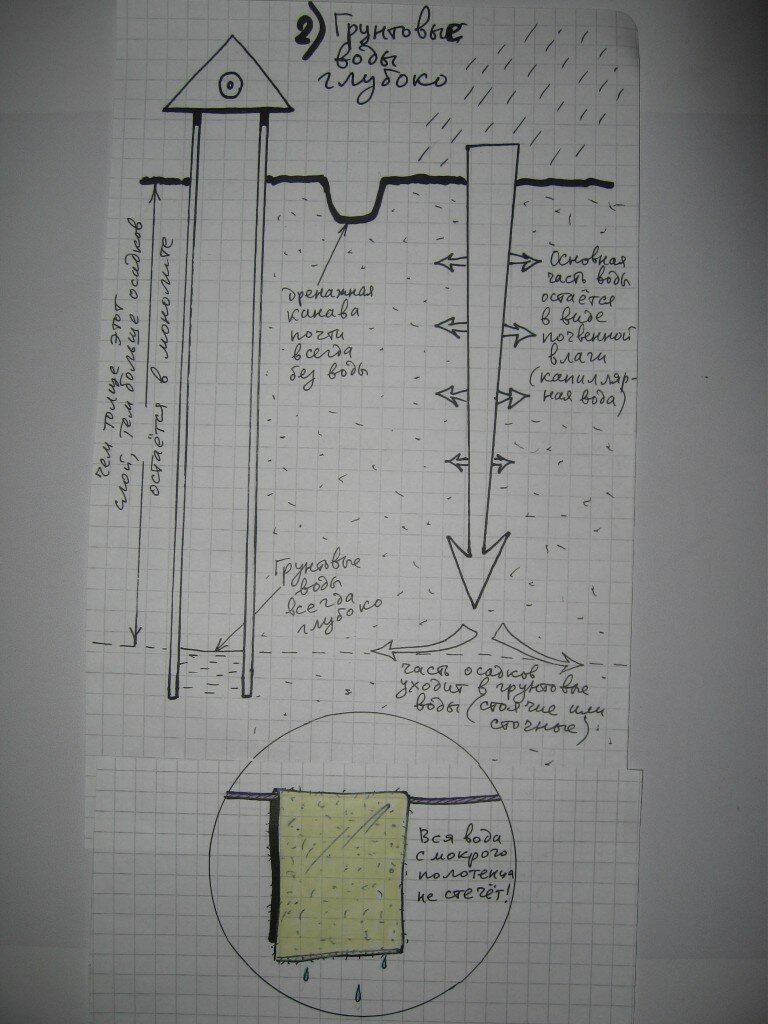 2) Грунтовые
воды
глубоко
Чем толще этот
слой, тем больше осадков
остаётся в монолите
дренажная
канава
почти
всегда
без воды
Основная
часть воды
остаётся
в виде
почвенной
влаги
(капилляр-
ная вода)
Грунтовые
воды
всегда
глубоко
часть осадков
уходит в грунтовые
воды (стоячие или
сточные)
Вся вода
с мокрого
полотенца
не стечёт!